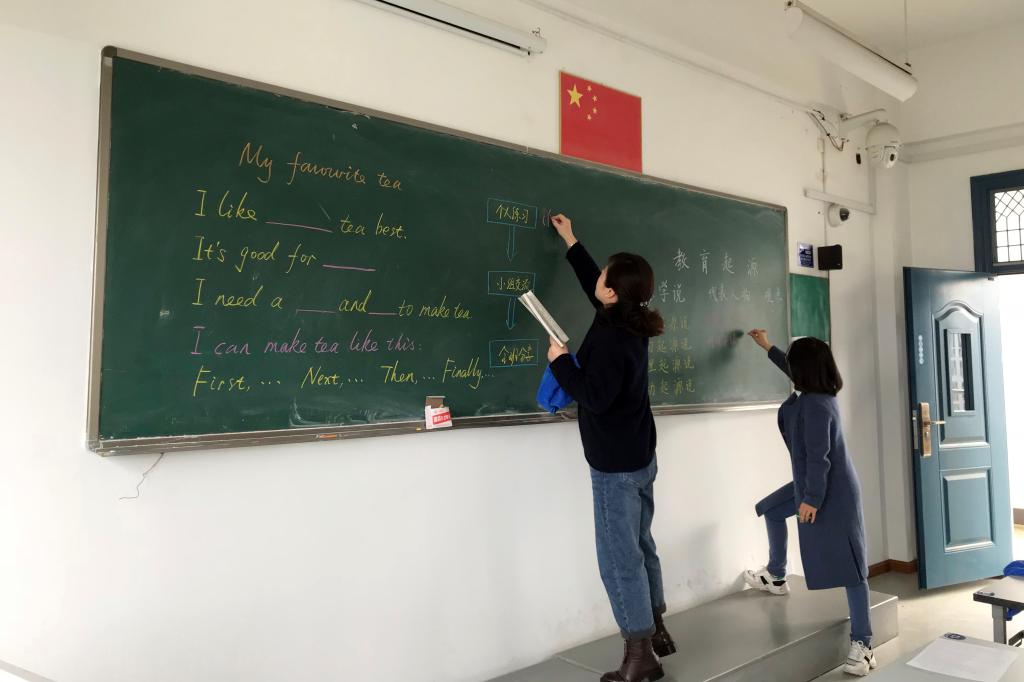 My favourite tea
I like ______ tea best.
It's good for ______
I need a ____ and ____ to make tea
I can make tea like this:
First, ... Next, ... Then, ... Finally, ...
个人练习
小组交流
教育起源
学说 代表人物 观点
源说
起源说
起源说
起源说